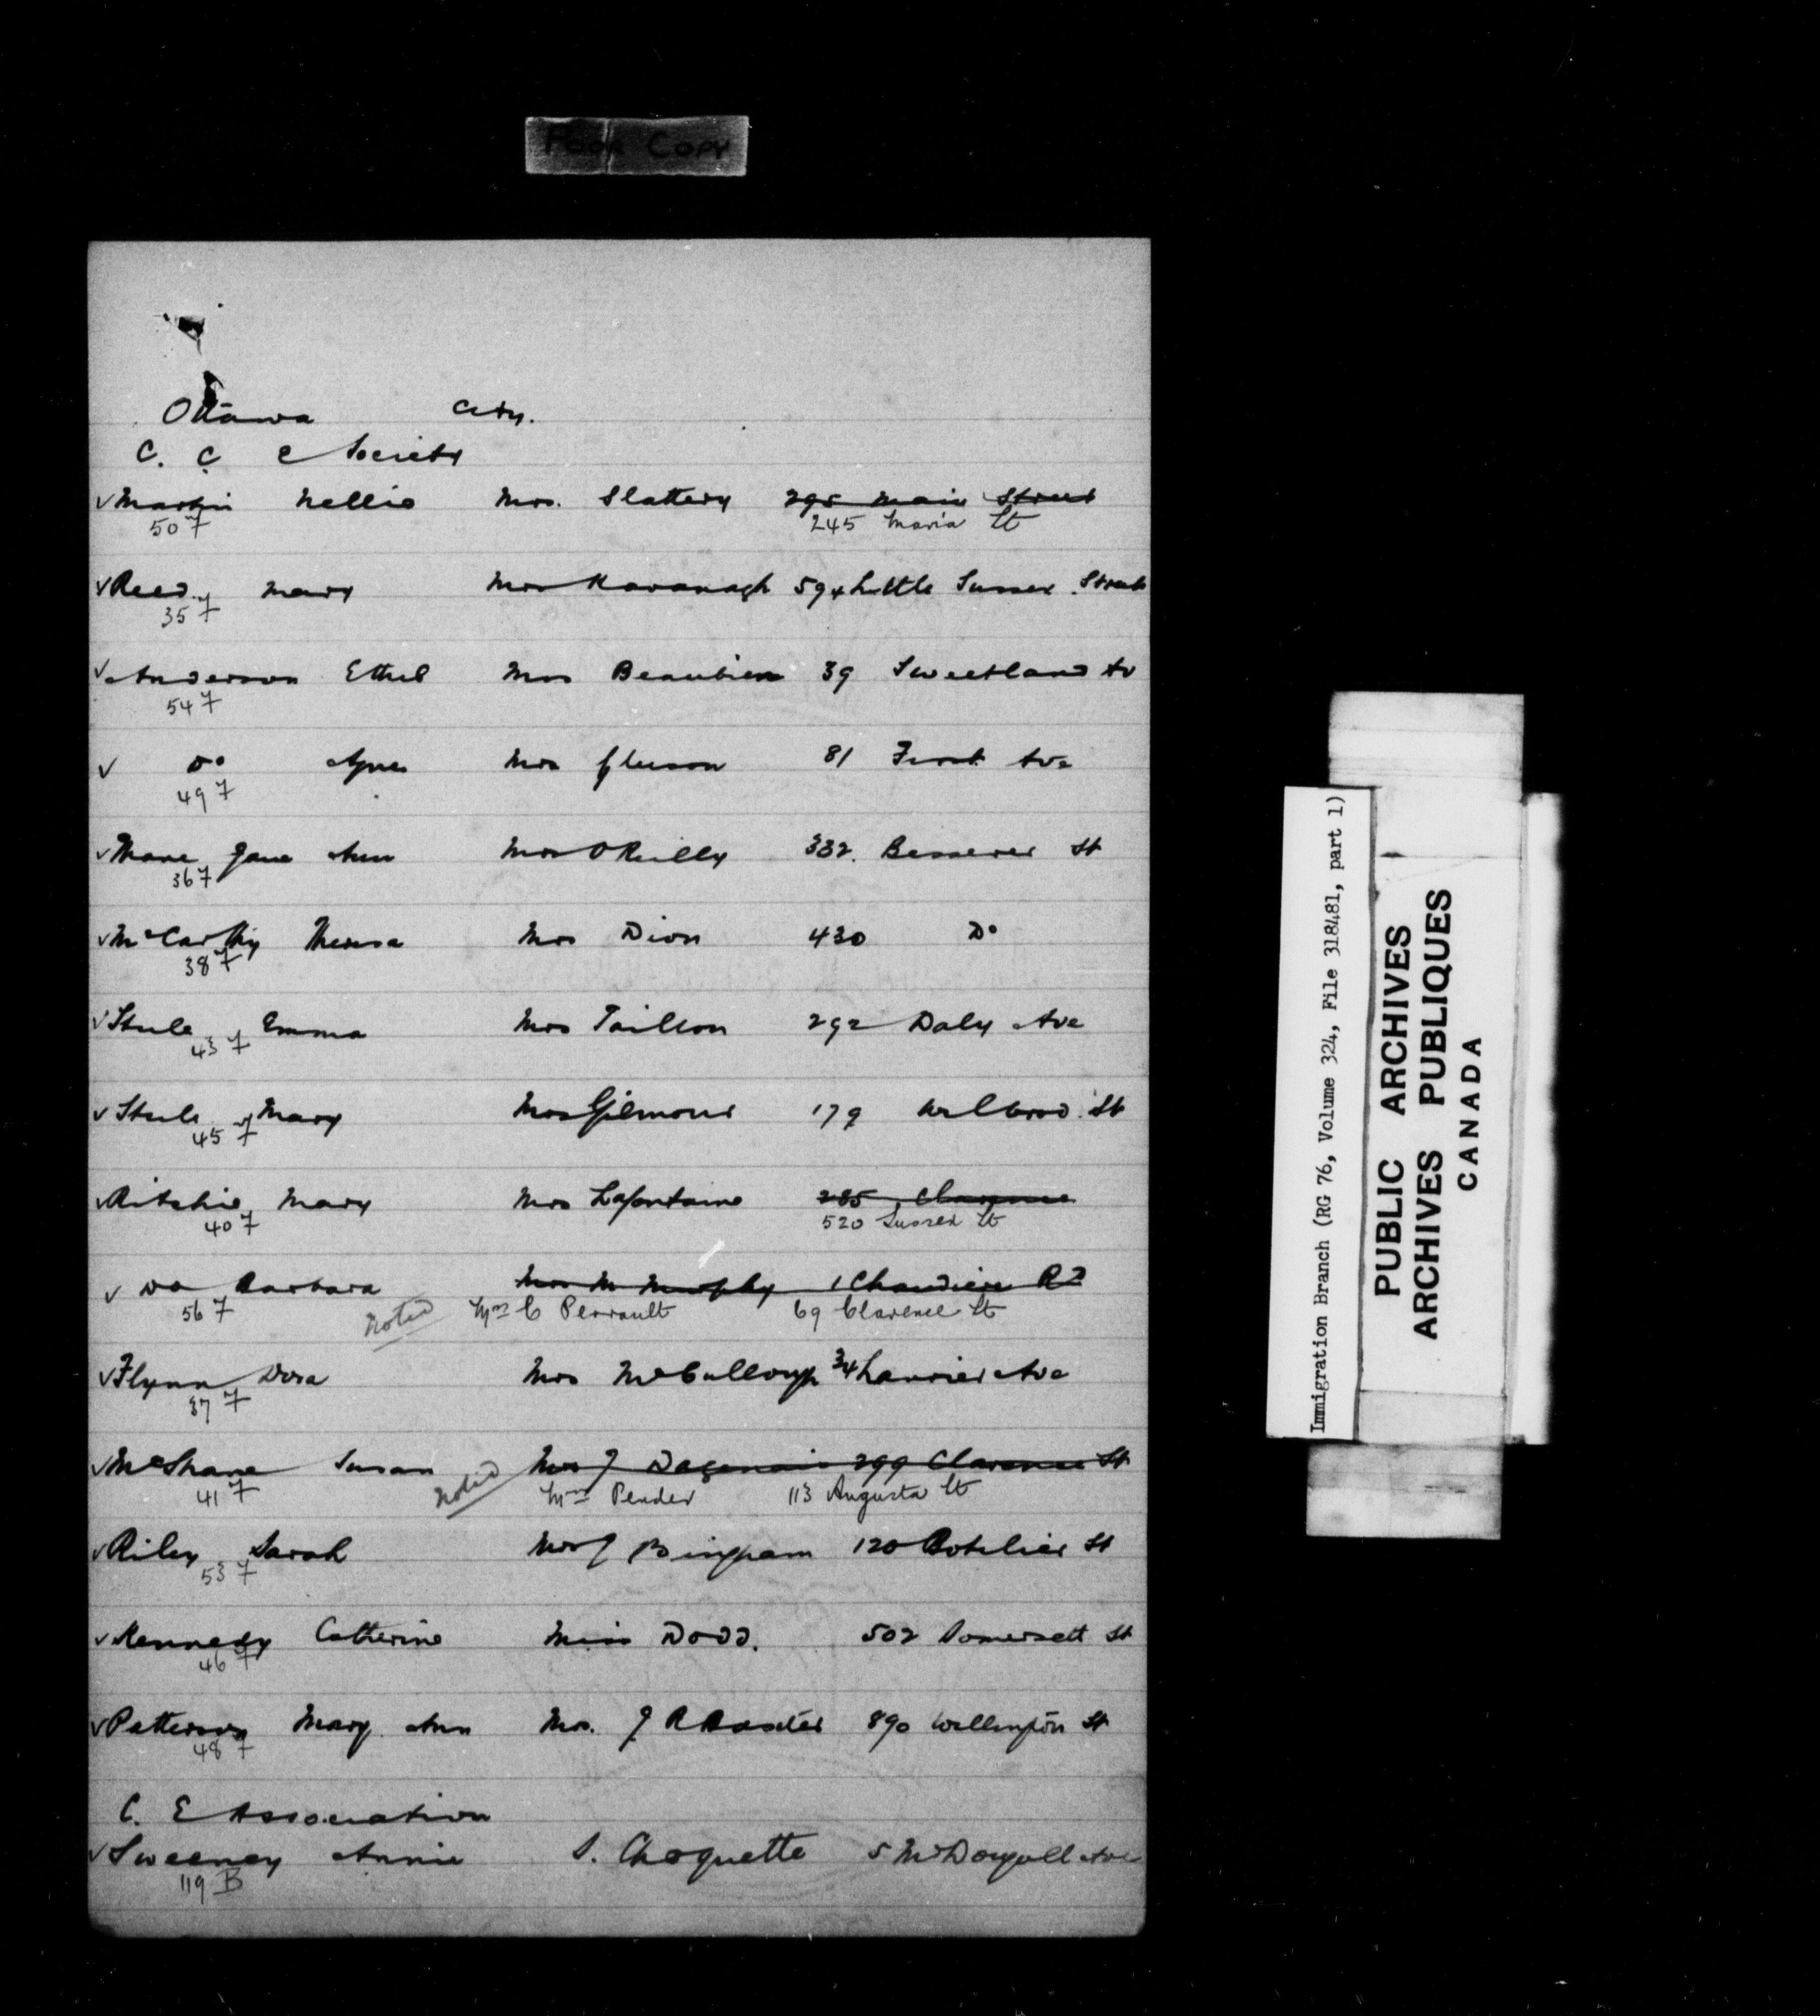 Poor Copy
Ottawa City.
C. C. E Society
✓ Martin Nellie Mrs. Slattery 295 Main Street
50 F 245 Maria St
✓ Reed Mary Mrs Kavanagh 594 Little Sussex Street
35 F
✓ Anderson Ethel Mrs Beaubien 39 Sweetland Av
54 F
✓ Do Agnes Mrs Gleeson 81 First Ave
49 F
✓ Jane Ann Mrs O'Reilly 332. Besserer St
36 F
✓ McCarthy Theresa Mrs Dion 430 Do
38 F
✓ Steele Emma Mrs Taillon 292 Daly Ave
43 F
✓ Steele Mary Mrs Gilmour 179 Wilbrod St
45 F
✓ Ritchie Mary Mrs Lafontaine 285 Clarence
40 F 520 Sussex St
✓ Do Barbara Mrs M Murphy 1 Chaudiere
56 F Noted Mrs C Perrault 69 Clarence St
✓ Flynn Dora Mrs McCullough 34 Laurier Ave
37 F
✓ McShane Susan Mrs J Dagenais 299 Clarence St
41 F Noted Mrs Pender 113 Augusta St
✓ Riley Sarah Mrs J Bingham 120 Botelier St
53 F
✓ Kennedy Catherine Miss Dodd. 502 Somersett St
46 F
✓ Patterson Mary Ann Mrs. J R Baxter 890 Wellington St
48 F
C. E Association
✓ Sweeney Annie S. Choquette 5 McDougall Ave
119 B
Immigration Branch (RG 76, Volume 324, File 318481, part 1)
PUBLIC ARCHIVES
ARCHIVES PUBLIQUES
CANADA